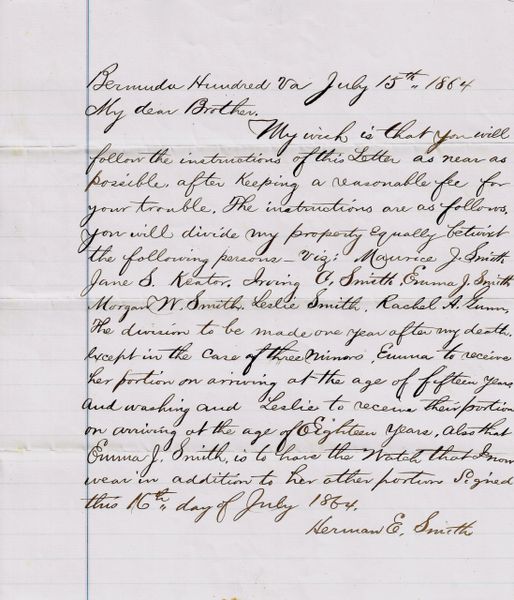 Bermuda Hundred Va July 15th, 1864
My dear Brother.
My wish is that you will
follow the instructions of this Letter as near as
possible, after Keeping a reasonable fee for
your trouble. The instructions are as follows.
you will divide my property Equally betwixt
the following persons - viz; Maurice J. Smith
Jane S. Keator. Irving A. Smith, Emma J. Smith
Morgan W. Smith. Leslie Smith, Rachel A. Gunn,
The division to be made one year after my death.
Except in the Case of three Minors, Emma to receive
her portion on arriving at the age of fifteen years
and washing and Leslie to receive their portion
on arriving at the age of Eighteen Years, also that
Emma J. Smith, is to have the Watch that I now
wear in addition to her other portion Signed
this 16th, day of July 1864.
Herman E. Smith